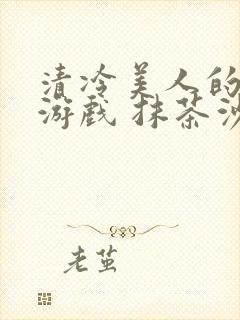 清冷美人的
游戏 抹茶沙
老茧